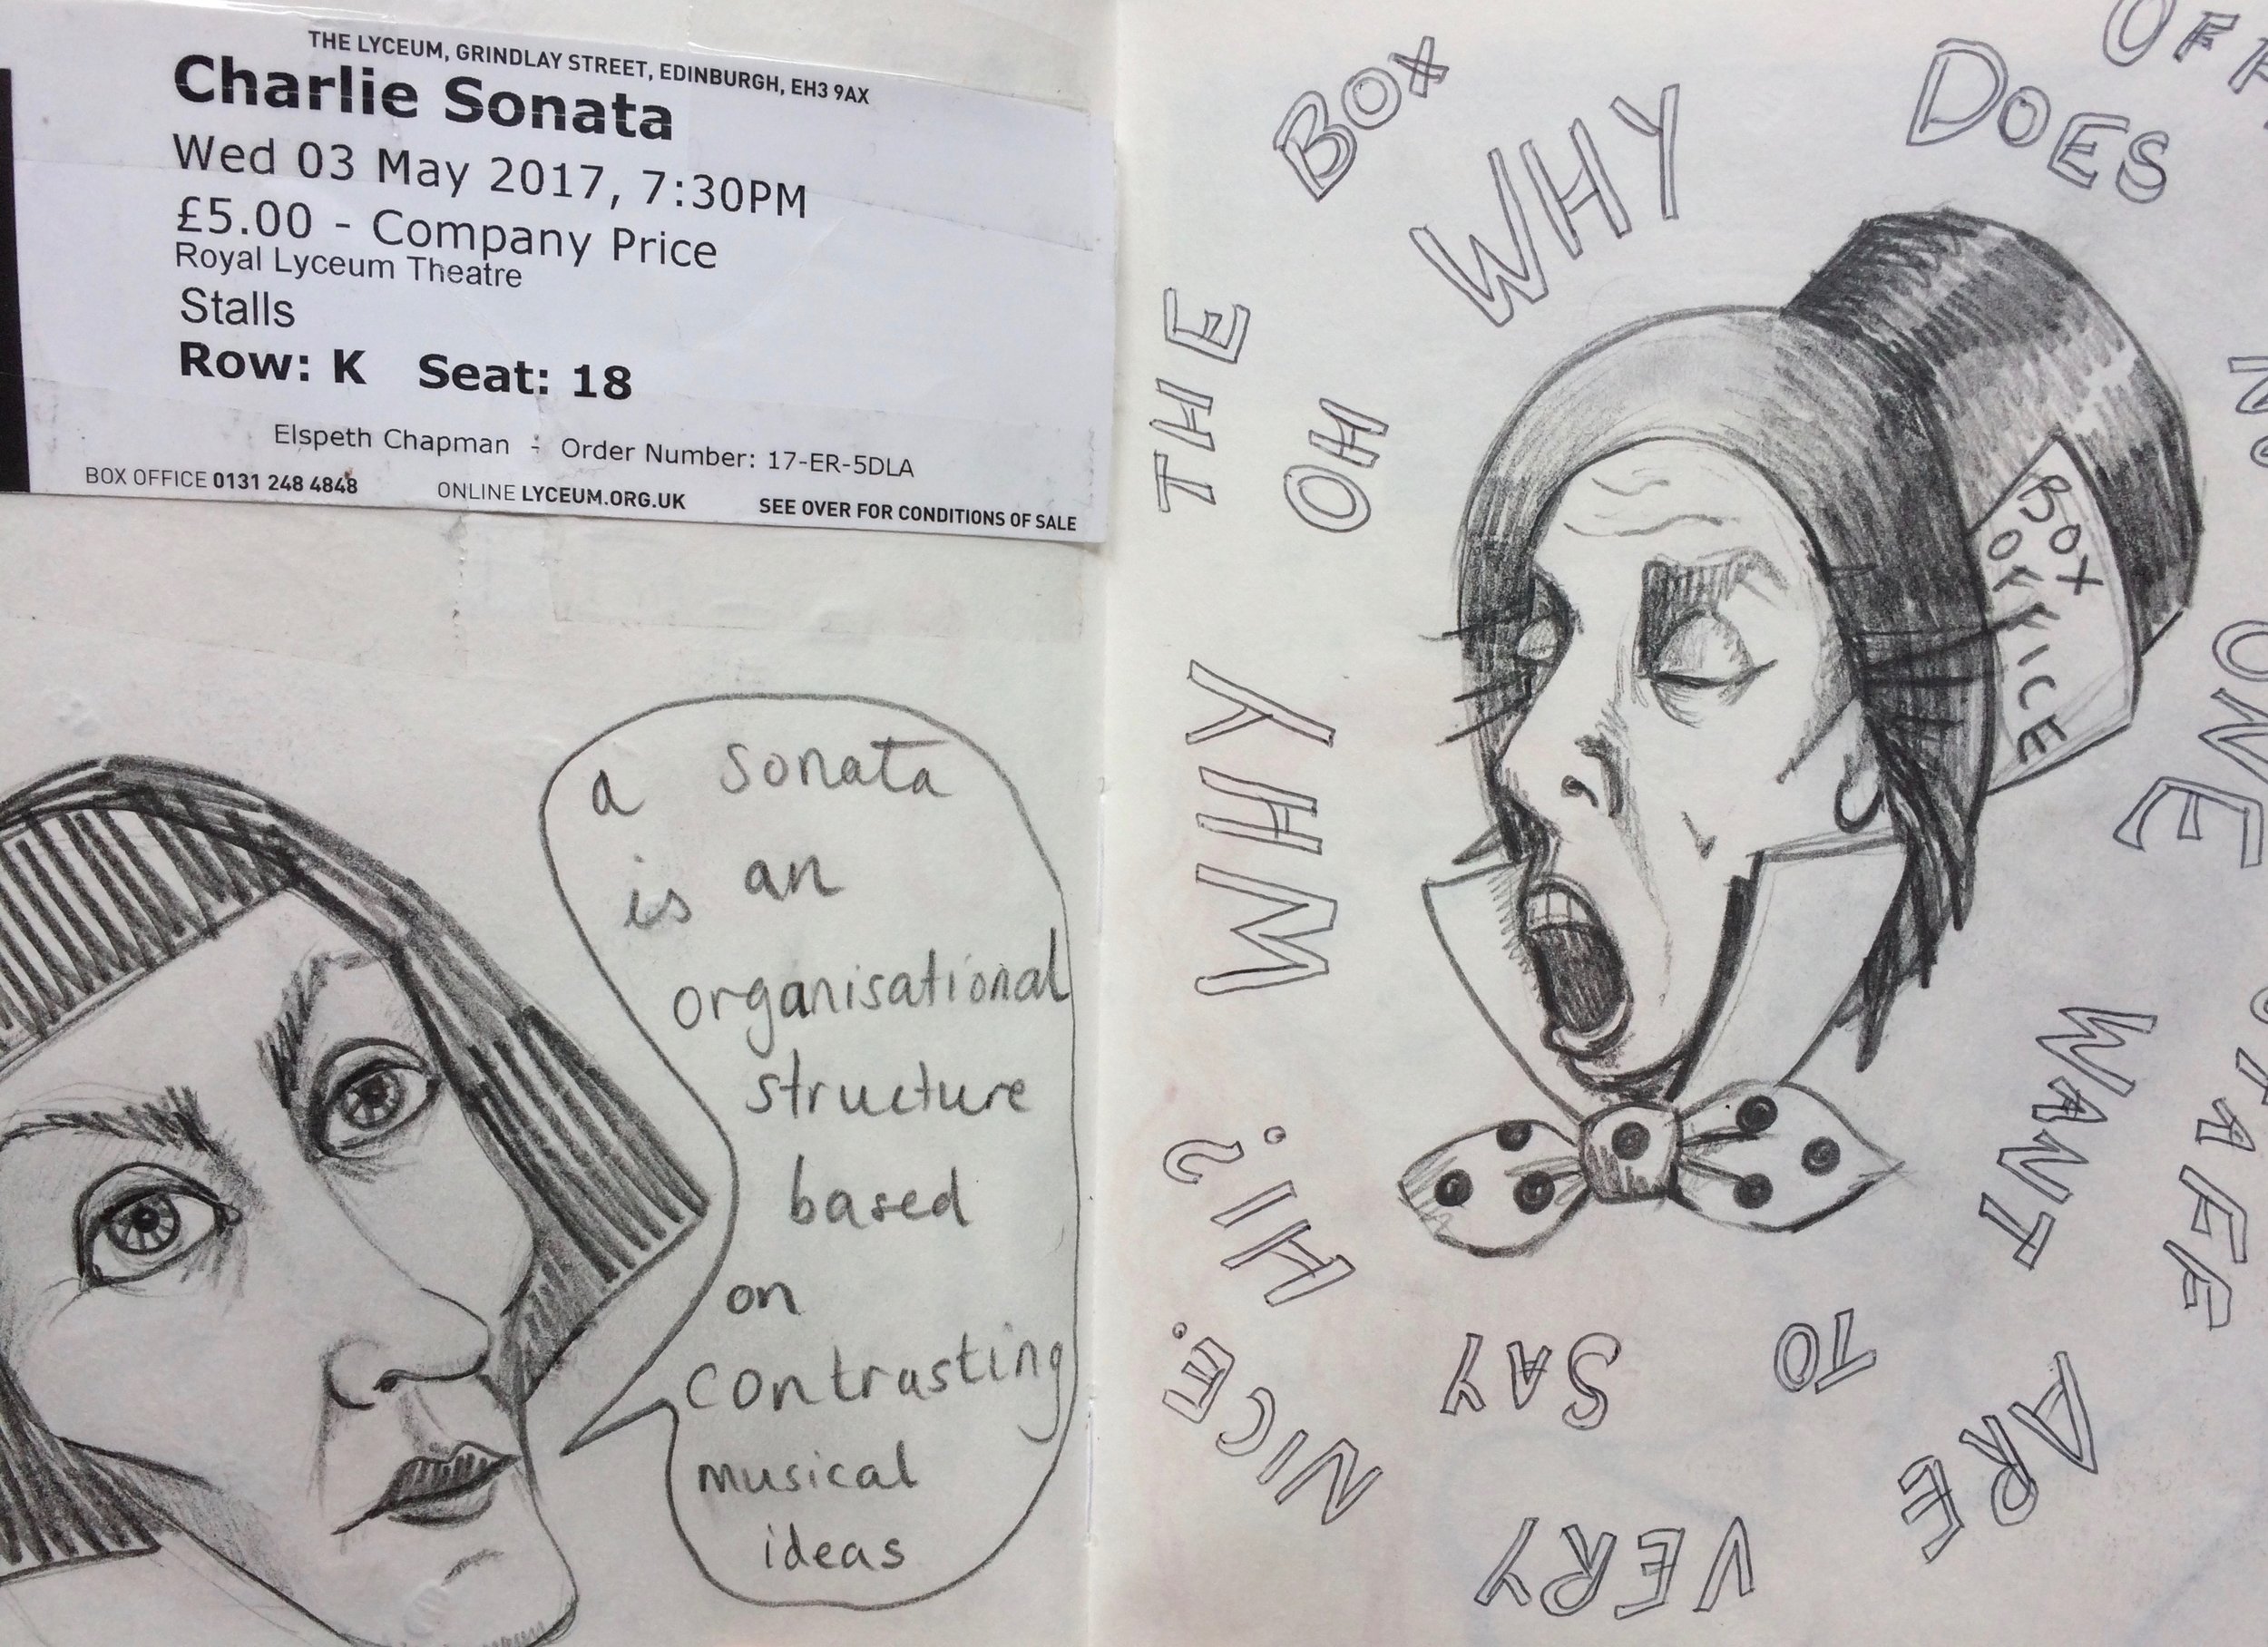 THE LYCEUM, GRINDLAY STREET, EDINBURGH, EH3 9AX
Charlie Sonata
Wed 03 May 2017, 7:30PM
£5.00 - Company Price
Royal Lyceum Theatre
Stalls
Row: K Seat: 18
Elspeth Chapman - Order Number: 17-ER-5DLA
BOX OFFICE 0131 248 4848 ONLINE LYCEUM.ORG.UK SEE OVER FOR CONDITIONS OF SALE
a sonata
is an
organisational
structure
based
on
contrasting
musical
ideas
THE BOX OFF STAFF ARE VERY NICE.
WHY OH WHY DOES NO ONE WANT TO SAY HI?
BOX
OFFICE